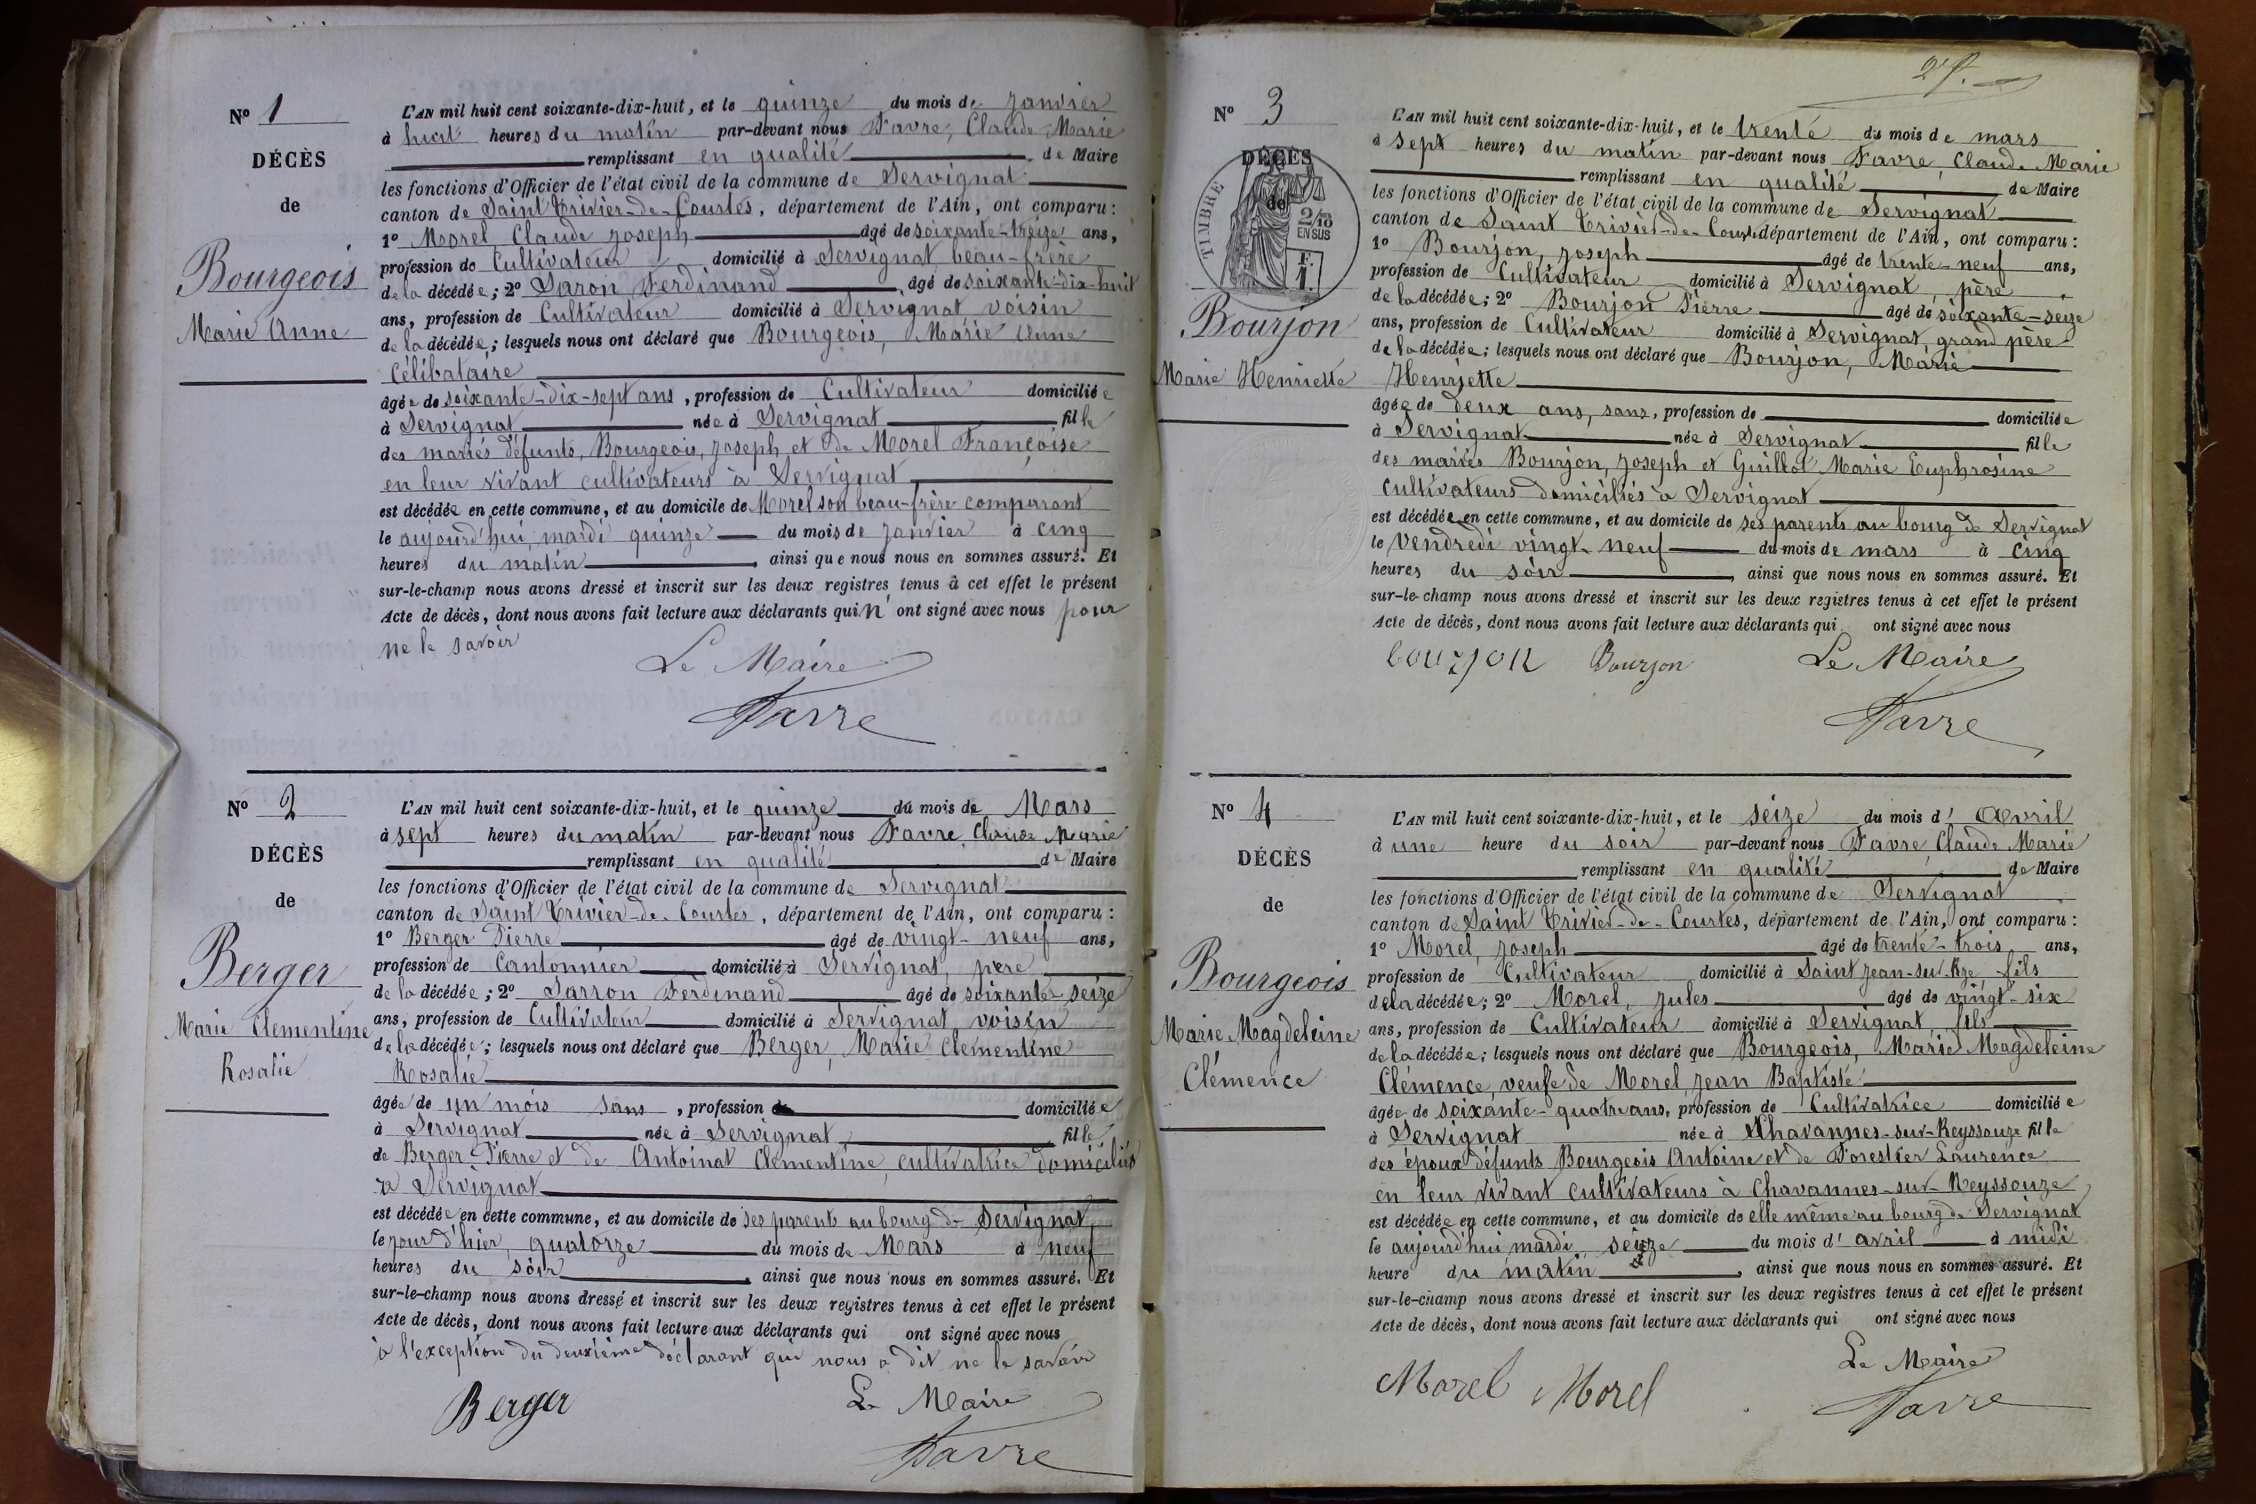 Nº 1
DÉCÈS
de
Bourgeois
Marie Anne
L'AN mil huit cent soixante-dix-huit, et le quinze du mois de Janvier
à huit heures du matin par-devant nous Favre, Claude Marie
remplissant en qualité de Maire
les fonctions d'Officier de l'état civil de la commune de Servignat
canton de Saint Trivier-de-Courtes, département de l'Ain, ont comparu :
1º Morel Claude Joseph âgé de soixante-treize ans,
profession de Cultivateur domicilié à Servignat beau-frère
de la décédée ; 2º Saron Ferdinand âgé de soixante-dix-huit
ans, profession de Cultivateur domicilié à Servignat, voisin
de la décédée ; lesquels nous ont déclaré que Bourgeois, Marie Anne
Célibataire
âgée de soixante-dix-sept ans, profession de Cultivateur domiciliée
à Servignat née à Servignat fille
des mariés défunts, Bourgeois, Joseph et de Morel Françoise
en leur vivant cultivateurs à Servignat
est décédée en cette commune, et au domicile de Morel son beau-frère comparant
le aujourd'hui, mardi quinze du mois de Janvier à cinq
heures du matin, ainsi que nous nous en sommes assuré. Et
sur-le-champ nous avons dressé et inscrit sur les deux registres tenus à cet effet le présent
Acte de décès, dont nous avons fait lecture aux déclarants qui n'ont signé avec nous pour
ne le savoir
Le Maire
Favre
Nº 2
DÉCÈS
de
Berger
Marie Clementine
Rosalie
L'AN mil huit cent soixante-dix-huit, et le quinze du mois de Mars
à sept heures du matin par-devant nous Favre, Claude Marie
remplissant en qualité de Maire
les fonctions d'Officier de l'état civil de la commune de Servignat
canton de Saint Trivier-de-Courtes, département de l'Ain, ont comparu :
1º Berger Pierre âgé de vingt-neuf ans,
profession de Cantonnier domicilié à Servignat, père
de la décédée ; 2º Sarron Ferdinand âgé de soixante-seize
ans, profession de Cultivateur domicilié à Servignat voisin
de la décédée ; lesquels nous ont déclaré que Berger, Marie Clementine
Rosalie
âgée de un mois sans, profession domiciliée
à Servignat née à Servignat, fille
de Berger Pierre et de Antoinat Clementine, cultivatrice domiciliés
à Servignat
est décédée en cette commune, et au domicile de ses parents au bourg de Servignat
le jour d'hier, quatorze du mois de Mars à neuf
heures du soir, ainsi que nous nous en sommes assuré. Et
sur-le-champ nous avons dressé et inscrit sur les deux registres tenus à cet effet le présent
Acte de décès, dont nous avons fait lecture aux déclarants qui ont signé avec nous
à l'exception du deuxième déclarant qui nous a dit ne le savoir
Berger Le Maire
Favre
Nº 3
DÉCÈS
de
TIMBRE
2/10
EN SUS
F.
1.
Bourjon
Marie Henriette
L'AN mil huit cent soixante-dix-huit, et le trente du mois de mars
à sept heures du matin par-devant nous Favre, Claude Marie
remplissant en qualité de Maire
les fonctions d'Officier de l'état civil de la commune de Servignat
canton de Saint Trivier-de-Courtes département de l'Ain, ont comparu :
1º Bourjon, Joseph âgé de trente-neuf ans,
profession de Cultivateur domicilié à Servignat, père
de la décédée ; 2º Bourjon Pierre âgé de soixante-seize
ans, profession de Cultivateur domicilié à Servignat, grand père
de la décédée ; lesquels nous ont déclaré que Bourjon, Marie
Henriette
âgée de deux ans, sans, profession de domiciliée
à Servignat née à Servignat fille
des mariés Bourjon, Joseph et Guillot Marie Euphrosine
Cultivateurs domiciliés à Servignat
est décédée en cette commune, et au domicile de ses parents au bourg de Servignat
le Vendredi vingt-neuf du mois de mars à cinq
heures du soir, ainsi que nous nous en sommes assuré. Et
sur-le-champ nous avons dressé et inscrit sur les deux registres tenus à cet effet le présent
Acte de décès, dont nous avons fait lecture aux déclarants qui ont signé avec nous
bourjon Bourjon Le Maire
Favre
Nº 4
DÉCÈS
de
Bourgeois
Marie Magdeleine
Clémence
L'AN mil huit cent soixante-dix-huit, et le seize du mois d'Avril
à une heure du soir par-devant nous Favre, Claude Marie
remplissant en qualité de Maire
les fonctions d'Officier de l'état civil de la commune de Servignat
canton de Saint Trivier-de-Courtes, département de l'Ain, ont comparu :
1º Morel, Joseph âgé de trente-trois ans,
profession de Cultivateur domicilié à Saint Jean-sur-Rze fils
de la décédée ; 2º Morel, Jules âgé de vingt-six
ans, profession de Cultivateur domicilié à Servignat, fils
de la décédée ; lesquels nous ont déclaré que Bourgeois, Marie Magdeleine
Clémence, veufe de Morel, Jean Baptiste
âgée de soixante-quatre ans, profession de Cultivatrice domiciliée
à Servignat née à Chavannes-sur-Reyssouze fille
des époux défunts Bourgeois Antoine et de Forestier Laurence
en leur vivant cultivateurs à Chavannes-sur-Reyssouze
est décédée en cette commune, et au domicile de elle même au bourg de Servignat
le aujourd'hui mardi, seize du mois d'avril à midi
heure du matin, ainsi que nous nous en sommes assuré. Et
sur-le-champ nous avons dressé et inscrit sur les deux registres tenus à cet effet le présent
Acte de décès, dont nous avons fait lecture aux déclarants qui ont signé avec nous
Le Maire
Morel Morel
Favre